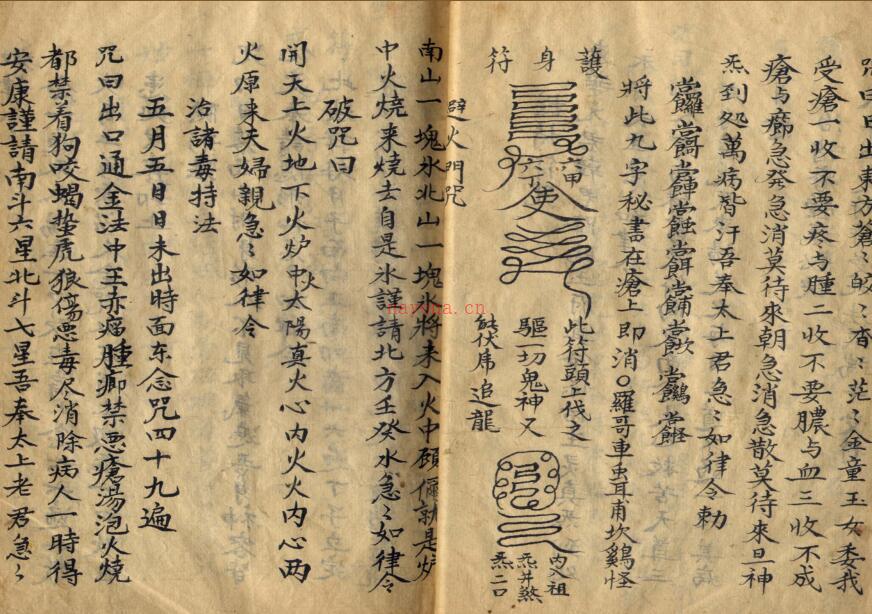 咒曰日出東方蒼〻皎〻杳〻茫〻金童玉女委我
受瘡一收不要疼与腫二收不要膿与血三收不成
瘡与癤急發急消莫待來朝急消急散莫待來旦神
炁到処萬病皆汗吾奉太上君急〻如律令勅
將此九字秘書在瘡上即消〇羅哥車虫耳甫坎鷄怪
護身符
六甲
此符頭上伐之
驅一切鬼神又
能伏虎追龍
内八祖
炁并煞
炁二口
避火門咒
南山一塊氷北山一塊氷將来入火中頋儞就是炉
中火燒来燒去自是氷謹請北方壬癸水急〻如律令
破咒曰
開天上火地下火炉中火太陽真火心内火火内心两
火原来夫婦親急〻如律令
治諸毒持法
五月五日日未出時面东念咒四十九遍
咒曰出口通金法中王赤瘤腫瘀禁悪瘡湯泡火燒
都禁着狗咬蝎蛰虎狼傷悪毒尽消除病人一時得
安康謹請南斗六星北斗七星吾奉太上老君急〻
nayona.cn